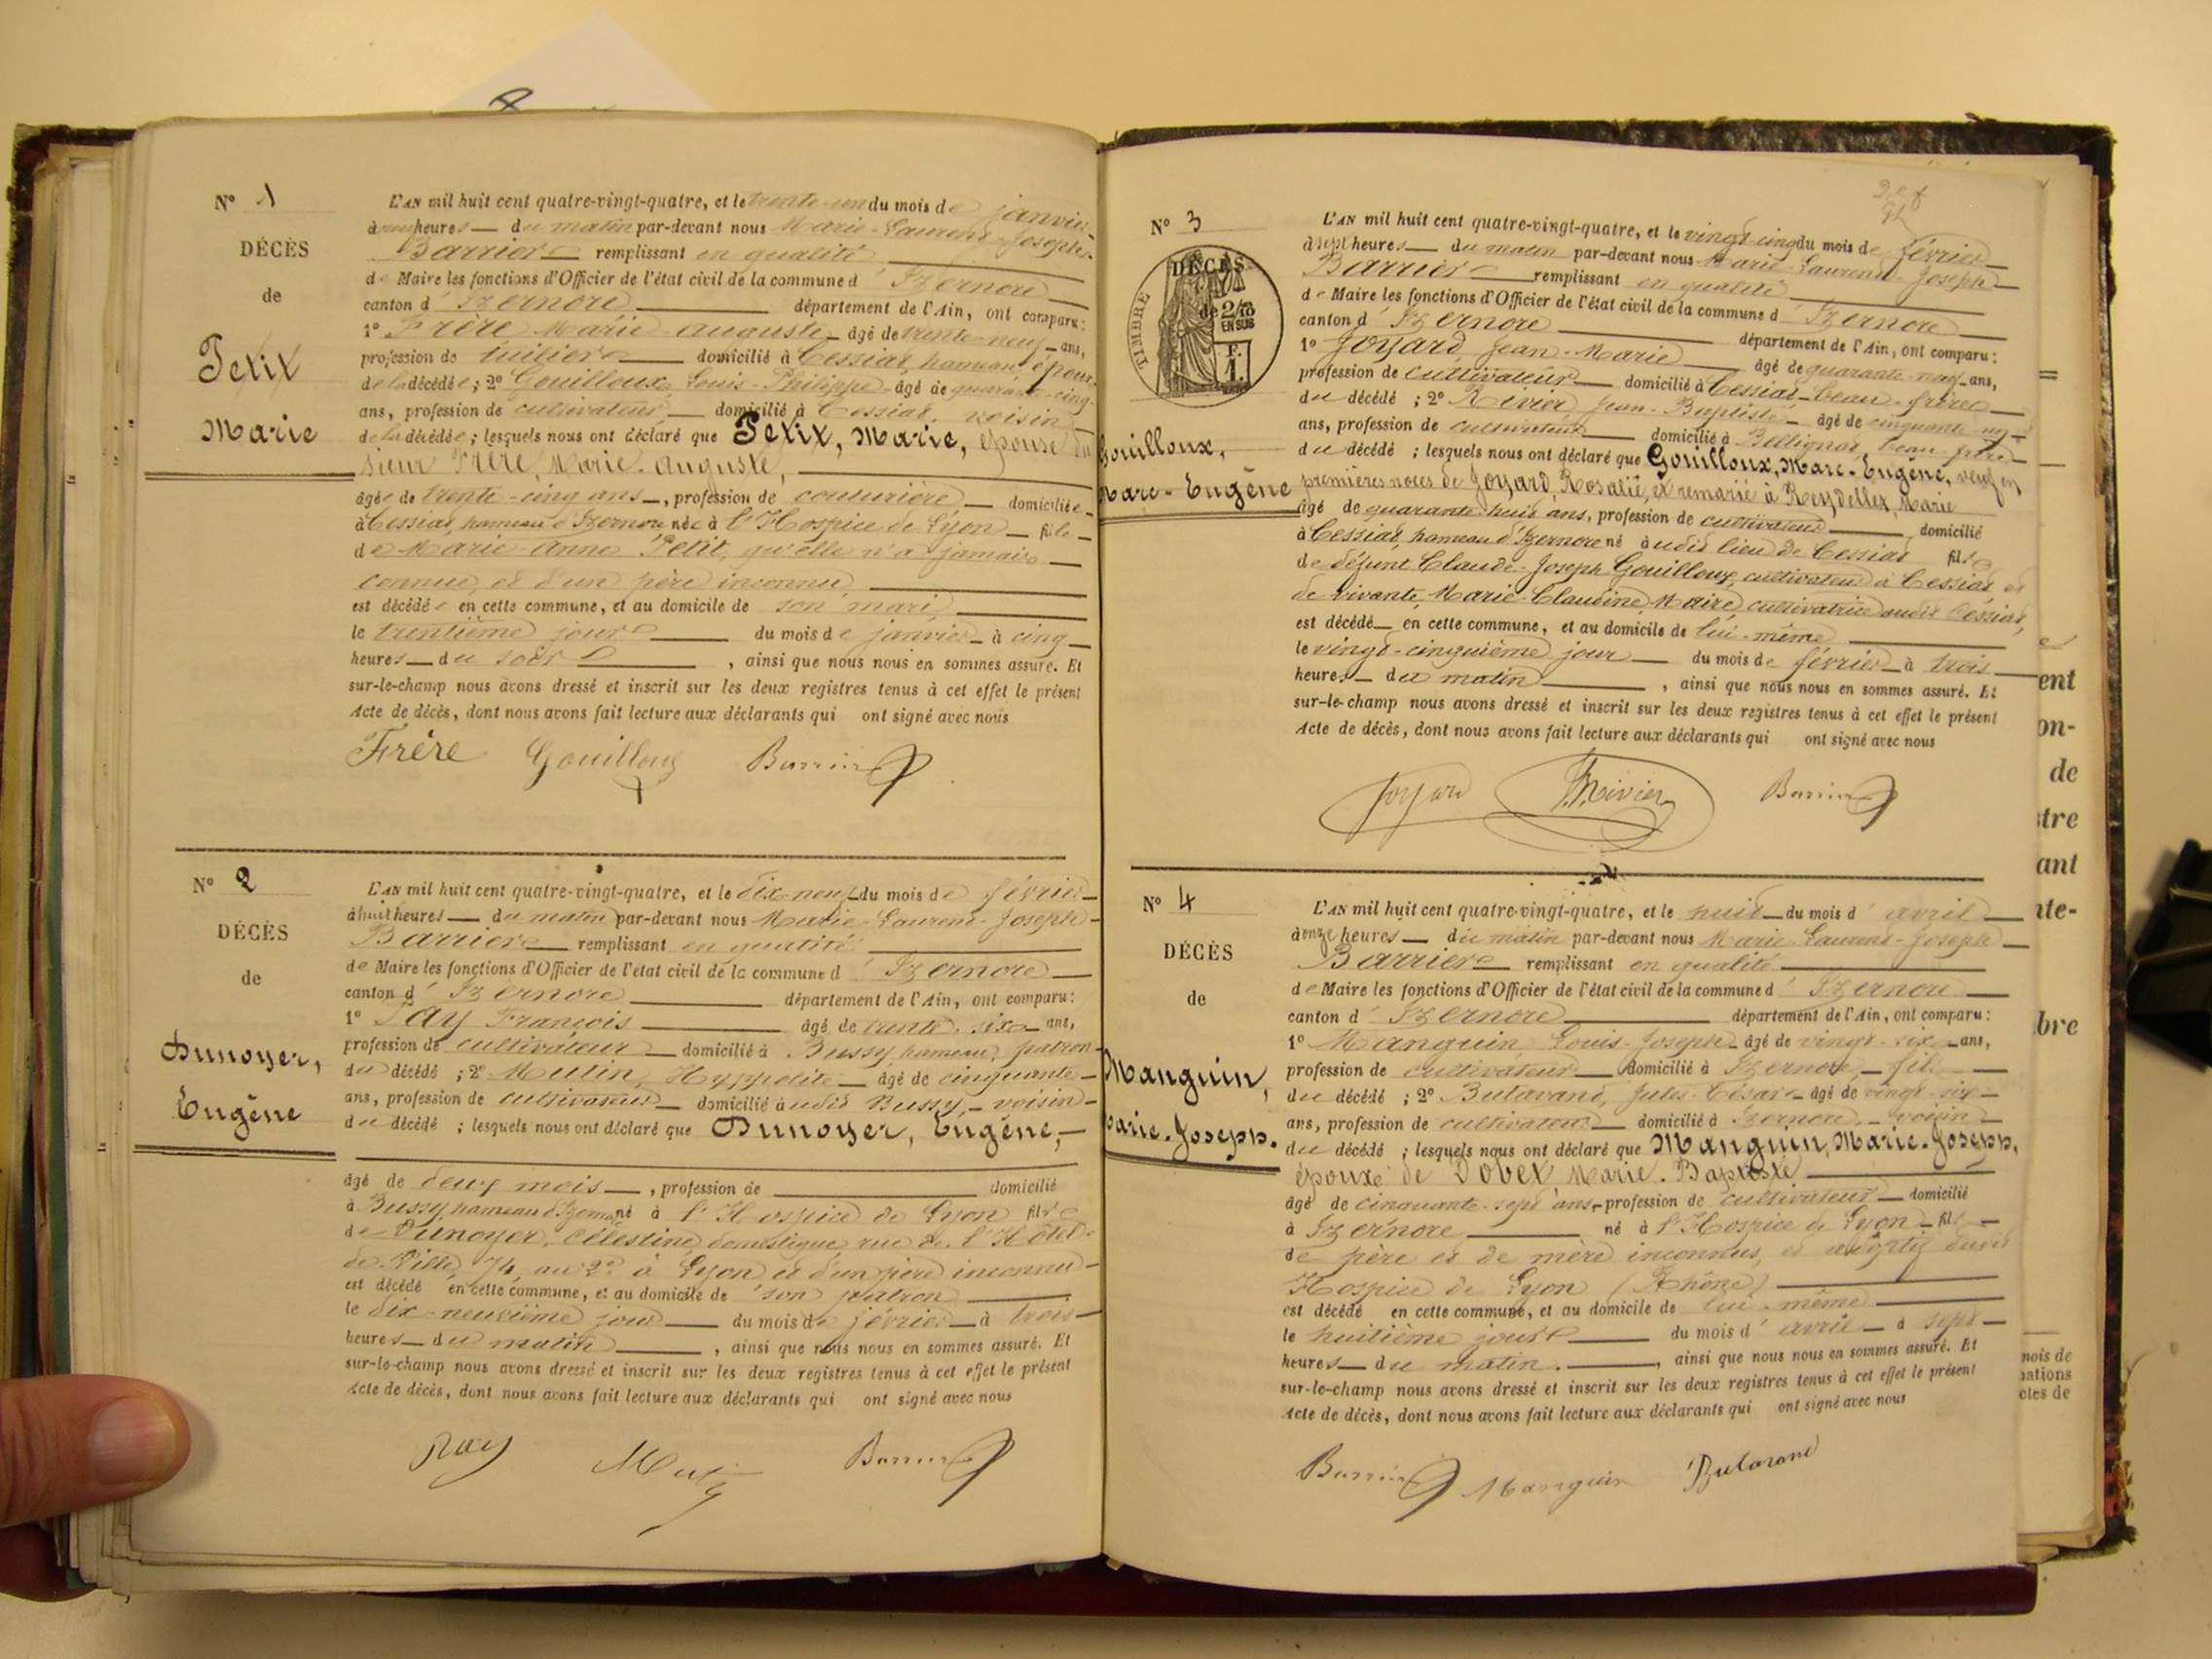 N° 1
DÉCÈS
de
Petit
Marie
L'AN mil huit cent quatre-vingt-quatre, et le trente-un du mois de janvier
à heures du matin par-devant nous Marie-Laurent-Joseph
Barrier remplissant en qualité
de Maire les fonctions d'Officier de l'état civil de la commune d'Izernore
canton d'Izernore département de l'Ain, ont comparu:
1° Frère Marie-Auguste âgé de trente-neuf ans,
profession de tuilier domicilié à Cessiat, hameau époux
de la décédée; 2° Gouilloux Louis-Philippe âgé de quarante-cinq
ans, profession de cultivateur domicilié à Cessiat, voisin
de la décédée; lesquels nous ont déclaré que Petit, Marie, épouse du
sieur Frère, Marie-Auguste,
âgée de trente-cinq ans, profession de couturière domiciliée
à Cessiat, hameau d'Izernore née à l'Hospice de Lyon fille
de Marie-Anne Petit, qu'elle n'a jamais
connue, et d'un père inconnu
est décédée en cette commune, et au domicile de son mari
le trentième jour du mois de janvier à cinq
heures du soir, ainsi que nous nous en sommes assuré. Et
sur-le-champ nous avons dressé et inscrit sur les deux registres tenus à cet effet le présent
Acte de décès, dont nous avons fait lecture aux déclarants qui ont signé avec nous
Frère Gouilloux Barrier
N° 2
DÉCÈS
de
Dunoyer,
Eugène
L'AN mil huit cent quatre-vingt-quatre, et le dix-neuf du mois de février
à huit heures du matin par-devant nous Marie-Laurent-Joseph
Barrier remplissant en qualité
de Maire les fonctions d'Officier de l'état civil de la commune d'Izernore
canton d'Izernore département de l'Ain, ont comparu:
1° François âgé de trente-six ans,
profession de cultivateur domicilié à Bussy hameau, patron
du décédé; 2° Mutin, Hyppolite âgé de cinquante
ans, profession de cultivateur domicilié audit Bussy, voisin
du décédé; lesquels nous ont déclaré que Dunoyer, Eugène,
âgé de deux mois, profession de domicilié
à Bussy, hameau d'Izernore né à l'Hospice de Lyon fils
de Dunoyer, Célestine, domestique, rue de l'Hôtel-
de-Ville, au 2e à Lyon et d'un père inconnu
est décédé en cette commune, et au domicile de son patron
le dix-neuvième jour du mois de février à trois
heures du matin, ainsi que nous nous en sommes assuré. Et
sur-le-champ nous avons dressé et inscrit sur les deux registres tenus à cet effet le présent
Acte de décès, dont nous avons fait lecture aux déclarants qui ont signé avec nous
Mutin Barrier
N° 3
TIMBRE
DÉCÈS
de
2/10
EN SUS
F.
1.
Gouilloux,
Marc-Eugène
L'AN mil huit cent quatre-vingt-quatre, et le vingt-cinq du mois de février
à sept heures du matin par-devant nous Marie-Laurent-Joseph
Barrier remplissant en qualité
de Maire les fonctions d'Officier de l'état civil de la commune d'Izernore
canton d'Izernore département de l'Ain, ont comparu:
1° Joyard, Jean-Marie âgé de quarante-neuf ans,
profession de cultivateur domicilié à Cessiat beau-frère
du décédé; 2° Rivier, Jean-Baptiste âgé de cinquante-un
ans, profession de cultivateur domicilié à Bellignat, beau-frère
du décédé; lesquels nous ont déclaré que Gouilloux, Marc-Eugène, veuf en
premières noces de Joyard, Rosalie, et remarié à Reydellet, Marie
âgé de quarante-huit ans, profession de cultivateur domicilié
à Cessiat, hameau d'Izernore né audit lieu de Cessiat fils
de défunt Claude-Joseph Gouilloux, cultivateur à Cessiat et
de vivante, Marie-Claudine Maire, cultivatrice audit Cessiat,
est décédé en cette commune, et au domicile de lui-même
le vingt-cinquième jour du mois de février à trois
heures du matin, ainsi que nous nous en sommes assuré. Et
sur-le-champ nous avons dressé et inscrit sur les deux registres tenus à cet effet le présent
Acte de décès, dont nous avons fait lecture aux déclarants qui ont signé avec nous
Joyard Rivier Barrier
N° 4
DÉCÈS
de
Manguin,
Marie-Joseph.
L'AN mil huit cent quatre-vingt-quatre, et le huit du mois d'avril
à onze heures du matin par-devant nous Marie-Laurent-Joseph
Barrier remplissant en qualité
de Maire les fonctions d'Officier de l'état civil de la commune d'Izernore
canton d'Izernore département de l'Ain, ont comparu:
1° Manguin, Louis-Joseph âgé de vingt-six ans,
profession de cultivateur domicilié à Izernore, fils
du décédé; 2° Butavand, Jules-César âgé de vingt-six
ans, profession de cultivateur domicilié à Izernore, voisin
du décédé; lesquels nous ont déclaré que Manguin, Marie-Joseph,
époux de Dovet Marie-Baptiste
âgé de cinquante-sept ans, profession de cultivateur domicilié
à Izernore né à l'Hospice de Lyon fils
de père et de mère inconnus, et adoptif dudit
Hospice de Lyon (Rhône)
est décédé en cette commune, et au domicile de lui-même
le huitième jour du mois d'avril à sept
heures du matin, ainsi que nous nous en sommes assuré. Et
sur-le-champ nous avons dressé et inscrit sur les deux registres tenus à cet effet le présent
Acte de décès, dont nous avons fait lecture aux déclarants qui ont signé avec nous
Barrier Manguin Butavand
ent
on-
de
tre
ant
nte-
bre
mois de
nations
ctes de